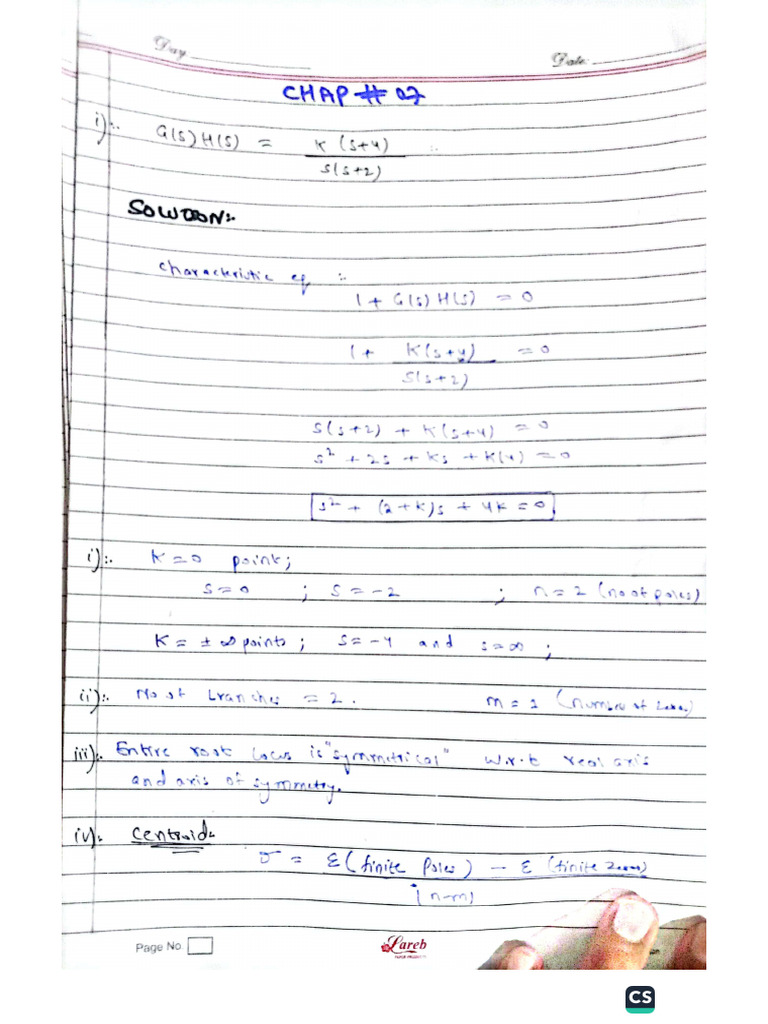 Day
Date:
CHAP # 07
i):. G(s) H(s) = K (s+4) :.
s(s+2)
SOLUTION:.
characteristic eq :.
1 + G(s) H(s) = 0
1 + K(s+4) = 0
S(s+2)
s(s+2) + K(s+4) = 0
s² + 2s + Ks + K(4) = 0
s² + (2+K)s + 4K = 0
i):. K=0 point;
s=0 ; s=-2 ; n=2 (no of poles)
K= ±∞ points ; s=-4 and s=∞ ;
ii):. No of branches = 2. m=1 (number of zeros)
iii):. Entire root locus is "symmetrical" w.r.t real axis
and axis of symmetry.
iv):. Centroid:.
σ = Σ(finite Poles) - Σ (finite zeros)
(n-m)
Page No
Lareb
CS